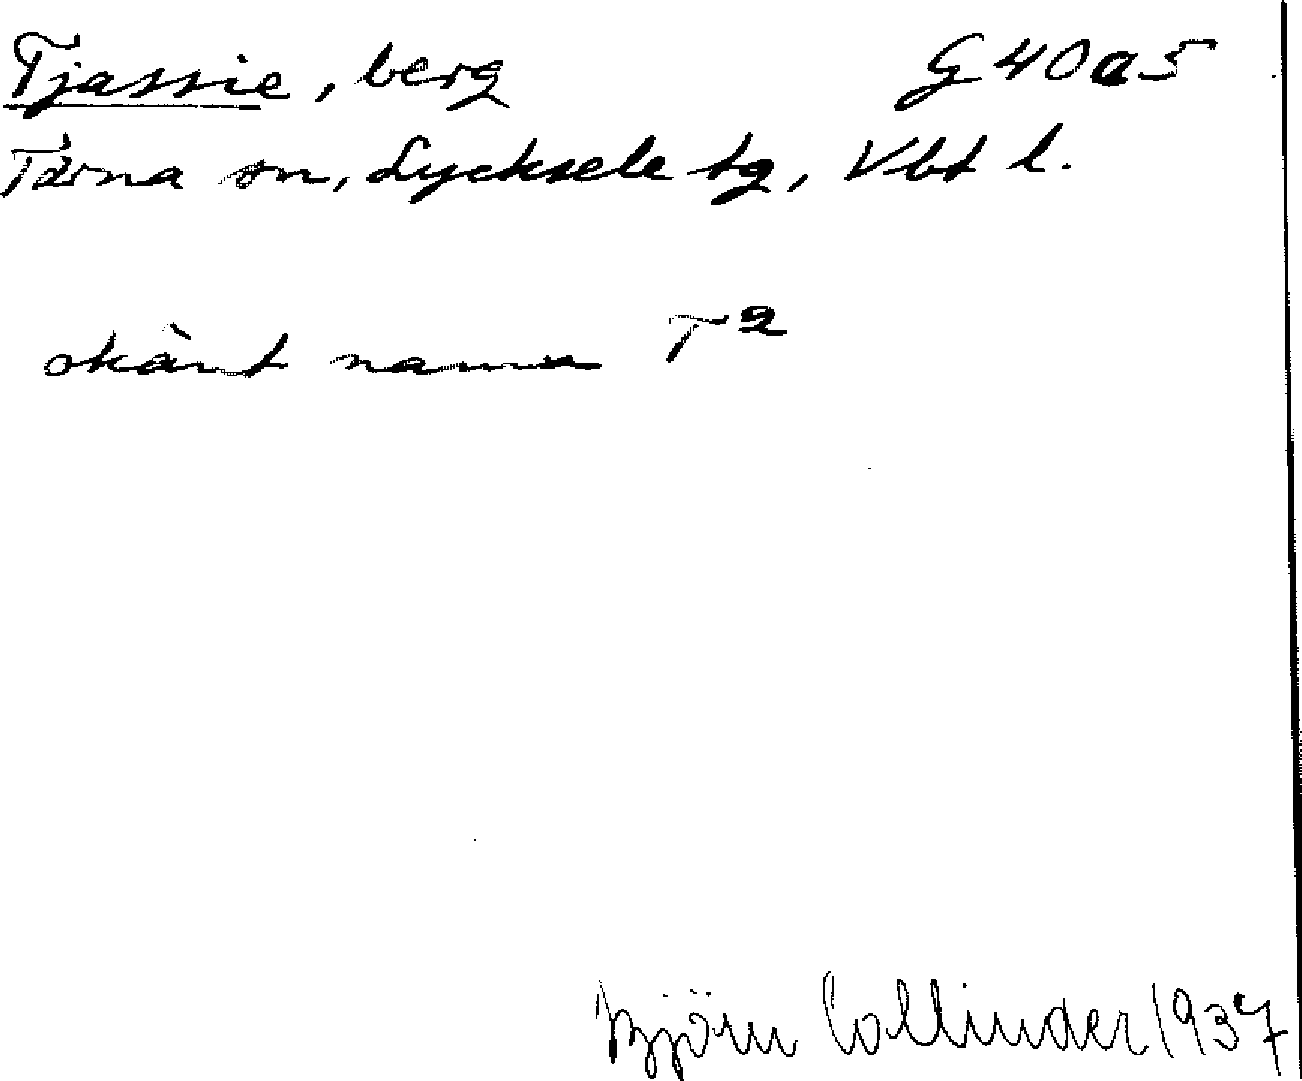 Tjassie, berg G 40 a 5
Tärna sn, Lycksele tg, Vbt l.
okänt namn T 2
Björn Collinder 1937